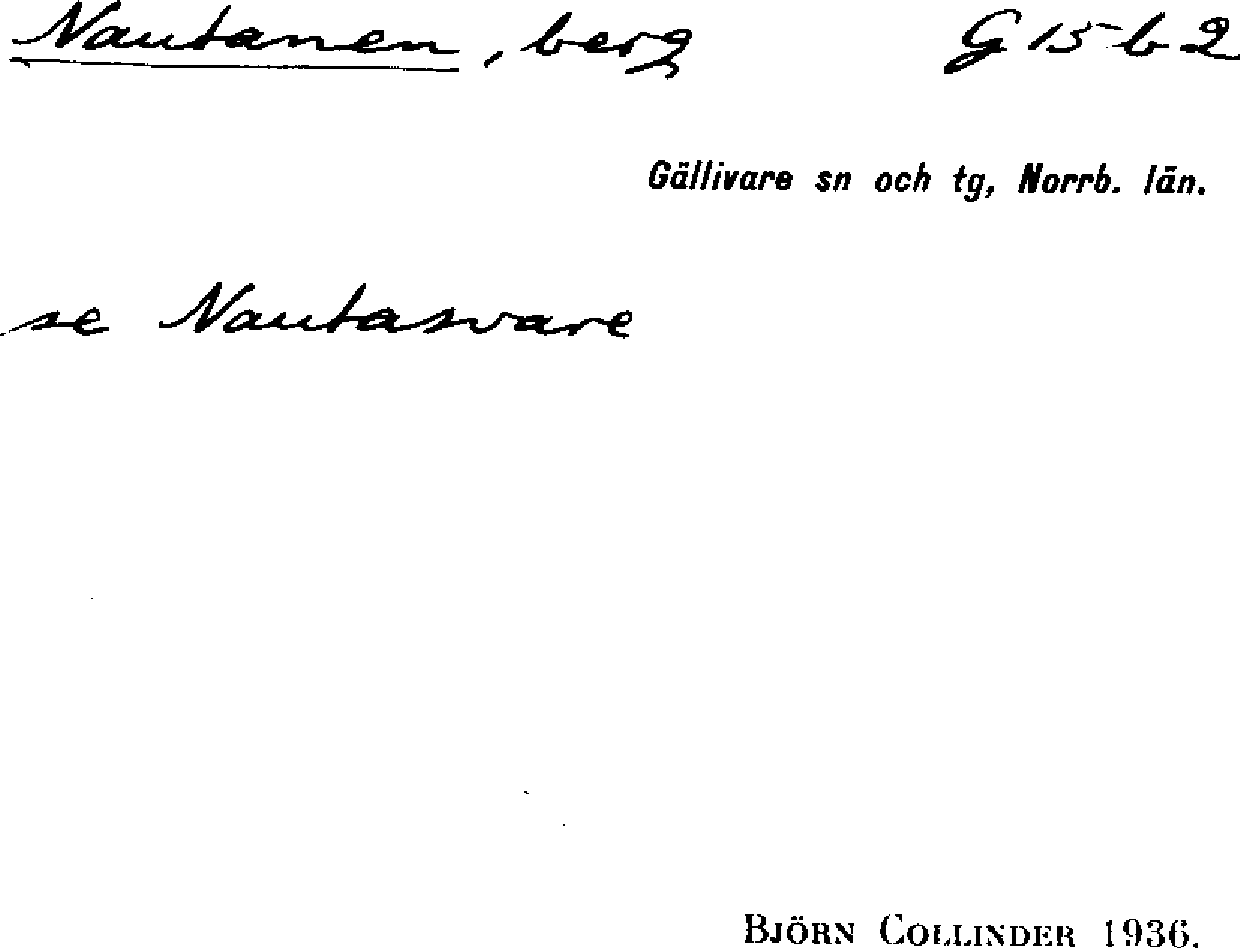 Nautanen, berg G 15 b 2
Gällivare sn och tg, Norrb. län.
se Nautasvare
BJÖRN COLLINDER 1936.